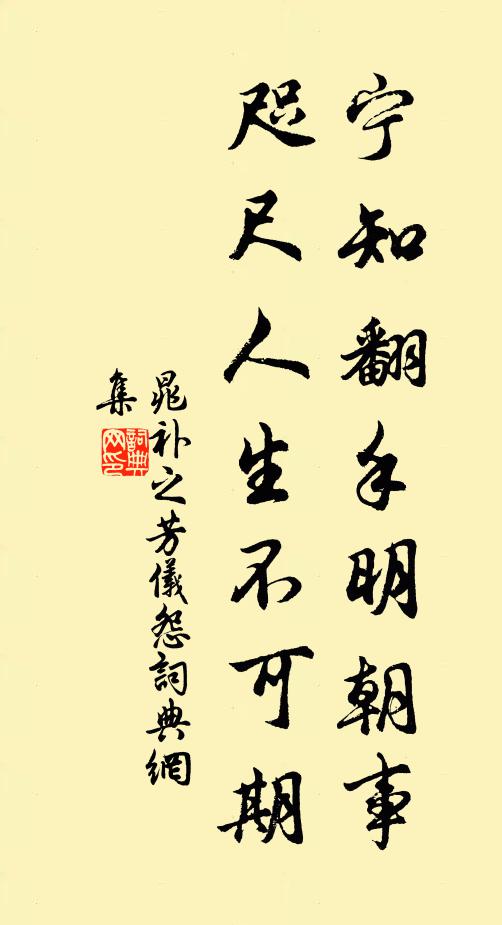 宁知翻手明朝事
咫尺人生不可期
晁补之芳儀怨詞典網
集
詞典
网印